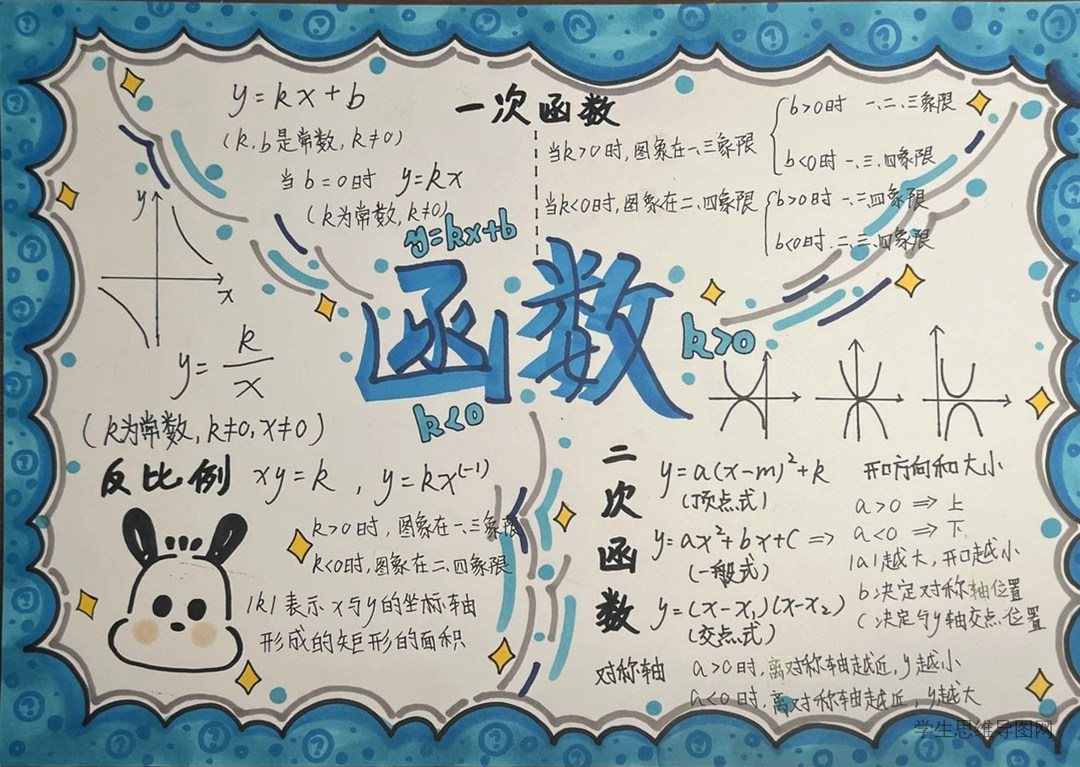 y=kx+b
(k,b是常数,k≠0)
当b=0时 y=kx
(k为常数,k≠0)
一次函数
当k>0时,图象在一、三象限
b>0时 一、二、三象限
b<0时 一、三、四象限
当k<0时,图象在二、四象限
b>0时 一、二四象限
b<0时.二、三、四象限
y=kx+b
函数
k>0
k<0
y
x
y=k/x
(k为常数,k≠0,x≠0)
反比例 xy=k , y=kx^(-1)
k>0时,图象在一、三象限
k<0时,图象在二、四象限
|k|表示x与y的坐标轴
形成的矩形的面积
二次函数
y=a(x-m)²+k
(顶点式)
y=ax²+bx+c=>
(一般式)
y=(x-x₁)(x-x₂)
(交点式)
开口方向和大小
a>0 => 上
a<0 => 下
|a|越大,开口越小
b:决定对称轴位置
c:决定与y轴交点位置
对称轴 a>0时,离对称轴越近,y越小
a<0时,离对称轴越近,y越大
学生思维导图网